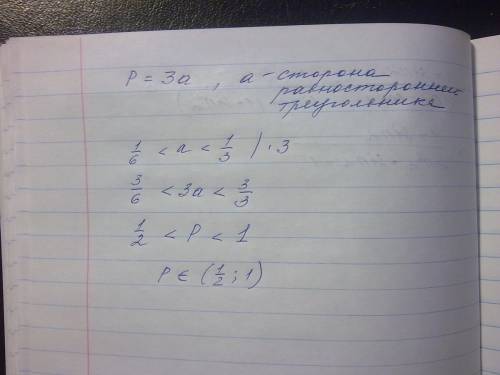 P = 3a , a – сторона
равносторонней
треугольника
1/6 < a < 1/3 | · 3
3/6 < 3a < 3/3
1/2 < P < 1
P ∈ (1/2 ; 1)